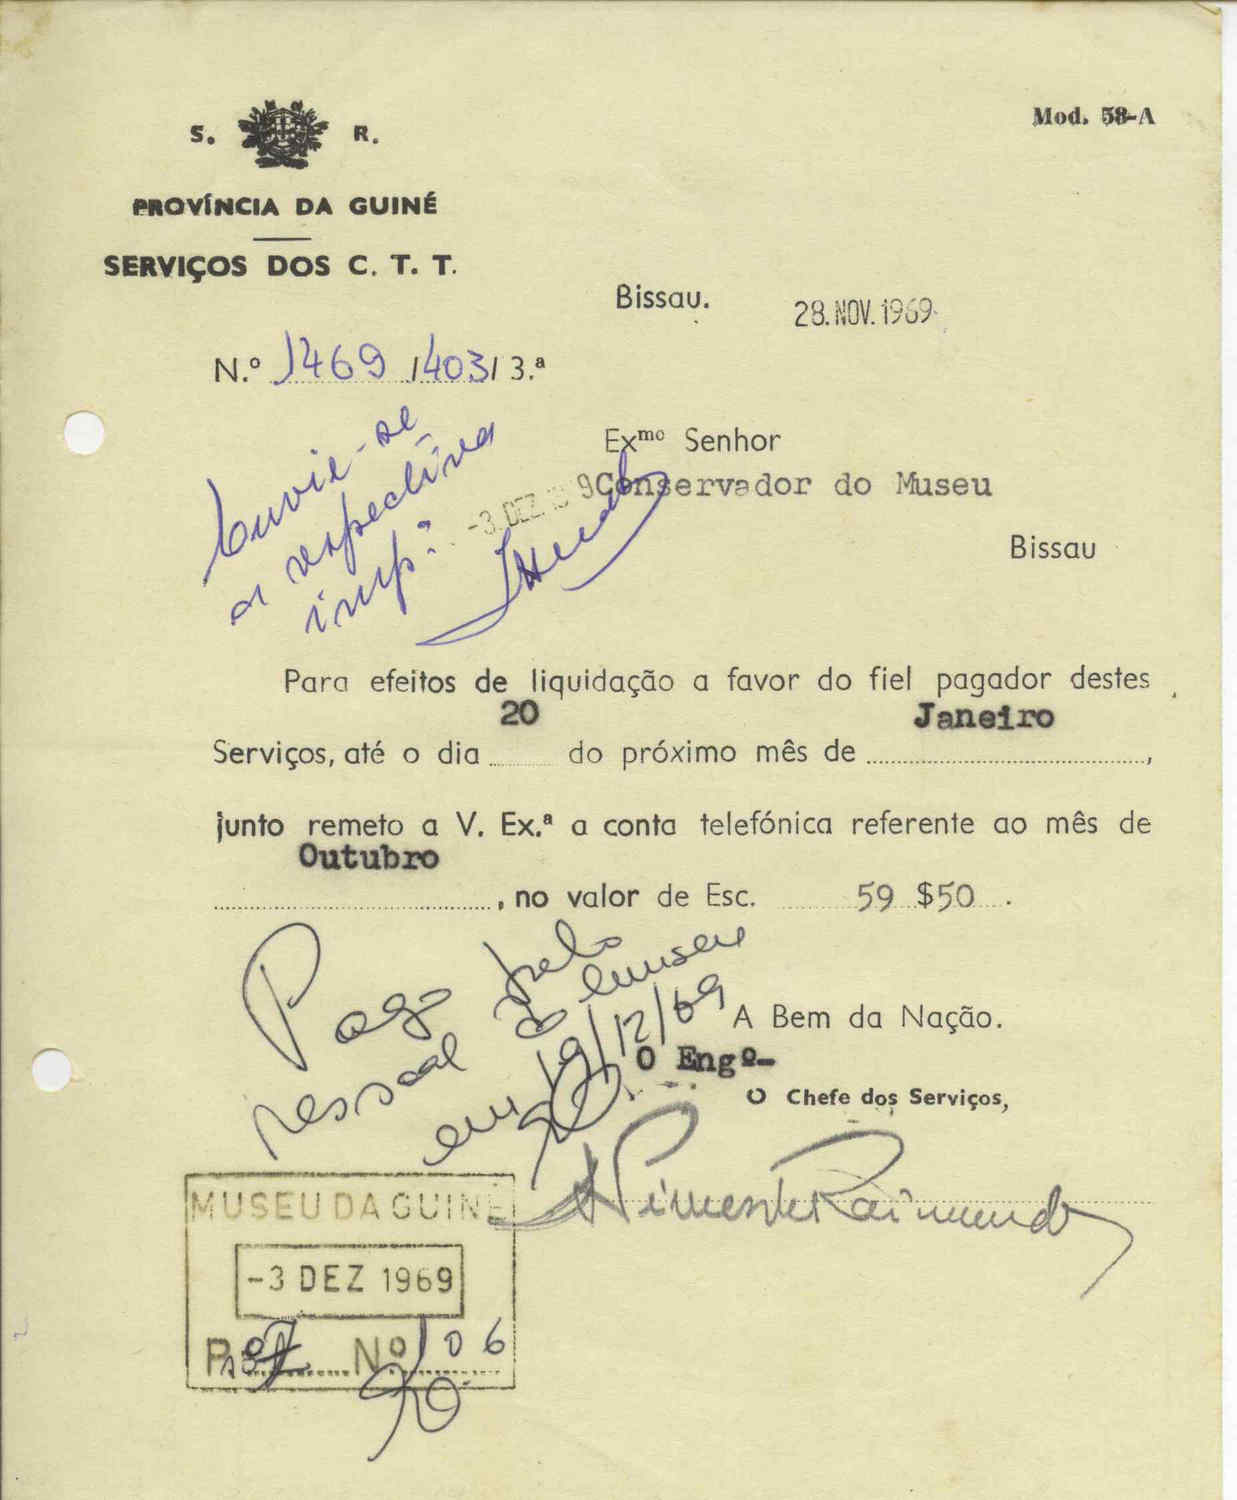 S. R.
Mod. 58-A
PROVÍNCIA DA GUINÉ
SERVIÇOS DOS C. T. T.
Bissau. 28.NOV.1969
N.º 1469 /403/ 3.ª
Envie-se
a respectiva
imp.ª
Exmo Senhor
-3.DEZ.19 9
Conservador do Museu
Bissau
Para efeitos de liquidação a favor do fiel pagador destes
Serviços, até o dia 20 do próximo mês de Janeiro,
junto remeto a V. Ex.ª a conta telefónica referente ao mês de
Outubro, no valor de Esc. 59 $50.
Pago pelo
pessoal do museu
em 19/12/69
A Bem da Nação.
O Engº-
O Chefe dos Serviços,
Pimenta Raimundo
MUSEU DA GUINÉ
-3 DEZ 1969
Nº 106